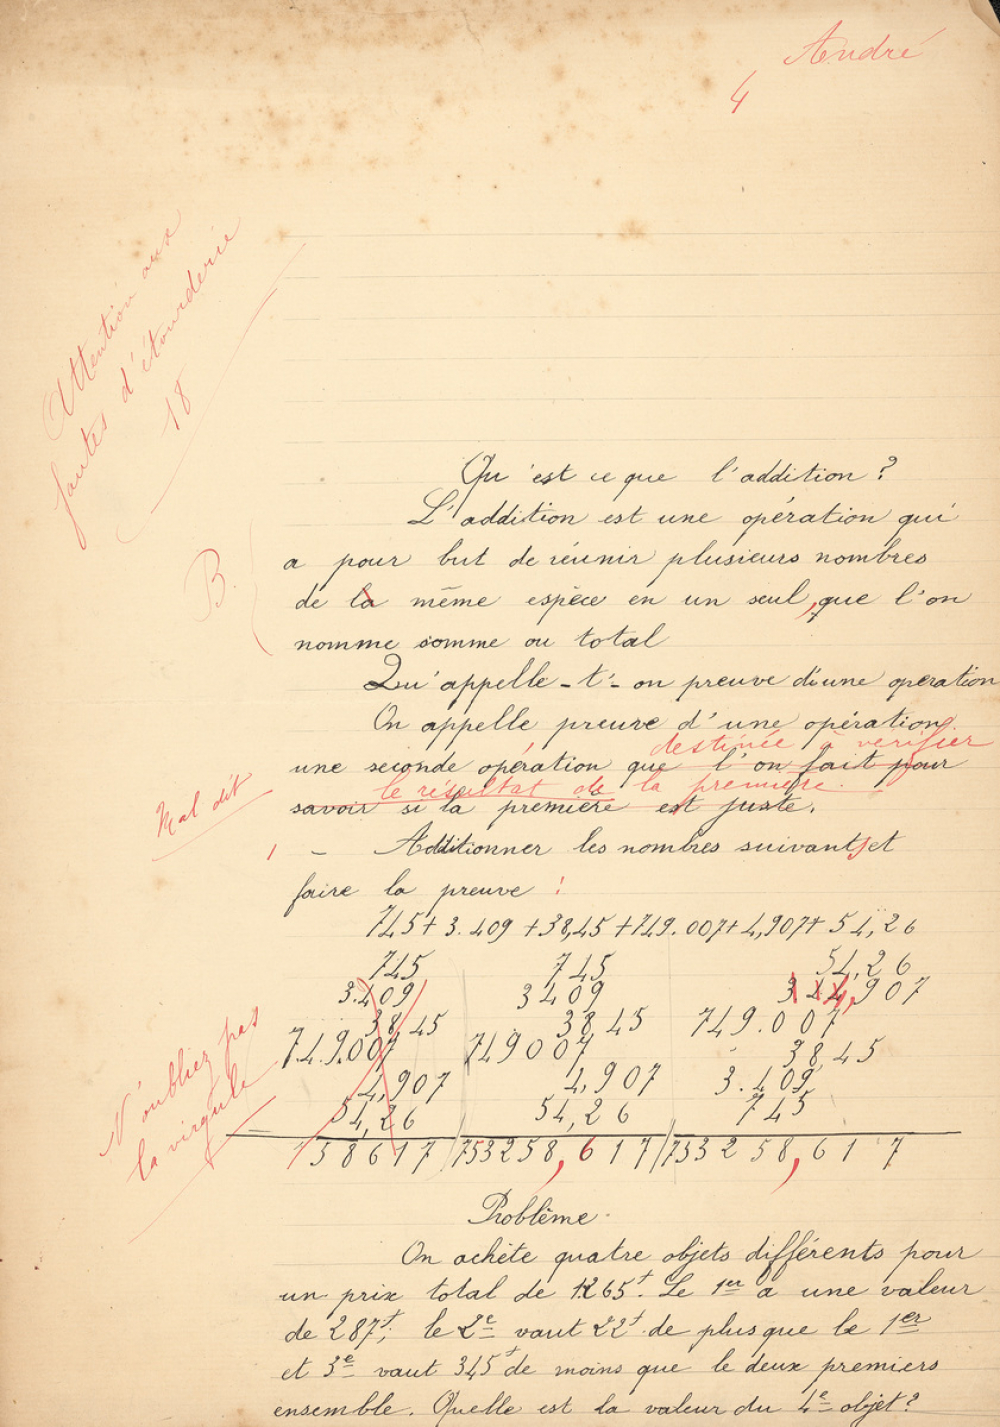 André
4
Attention aux
fautes d'étourderie
18
Qu'est ce que l'addition ?
L'addition est une opération qui
B.
a pour but de réunir plusieurs nombres
de la même espèce en un seul, que l'on
nomme somme ou total
Qu'appelle-t'-on preuve d'une operation
On appelle preuve d'une opération
destinée à vérifier
une seconde opération que l'on fait pour
le résultat de la première.
Mal dit
savoir si la première est juste.
1 - Additionner les nombres suivants et
faire la preuve !
745 + 3.409 + 38,45 + 749.007 + 4,907 + 54,26
745 745 54,26
3.409 3409 907
38,45 38,45 749.007
749.007 749007 38,45
4,907 4,907 3.409
54,26 54,26 745
N'oubliez pas
la virgule
158617 753258,617 753258,617
Problème.
On achète quatre objets différents pour
un prix total de 1265f. Le 1er a une valeur
de 287f; le 2e vaut 22f de plus que le 1er
et 3e vaut 345f de moins que le deux premiers
ensemble. Quelle est la valeur du 4e objet?